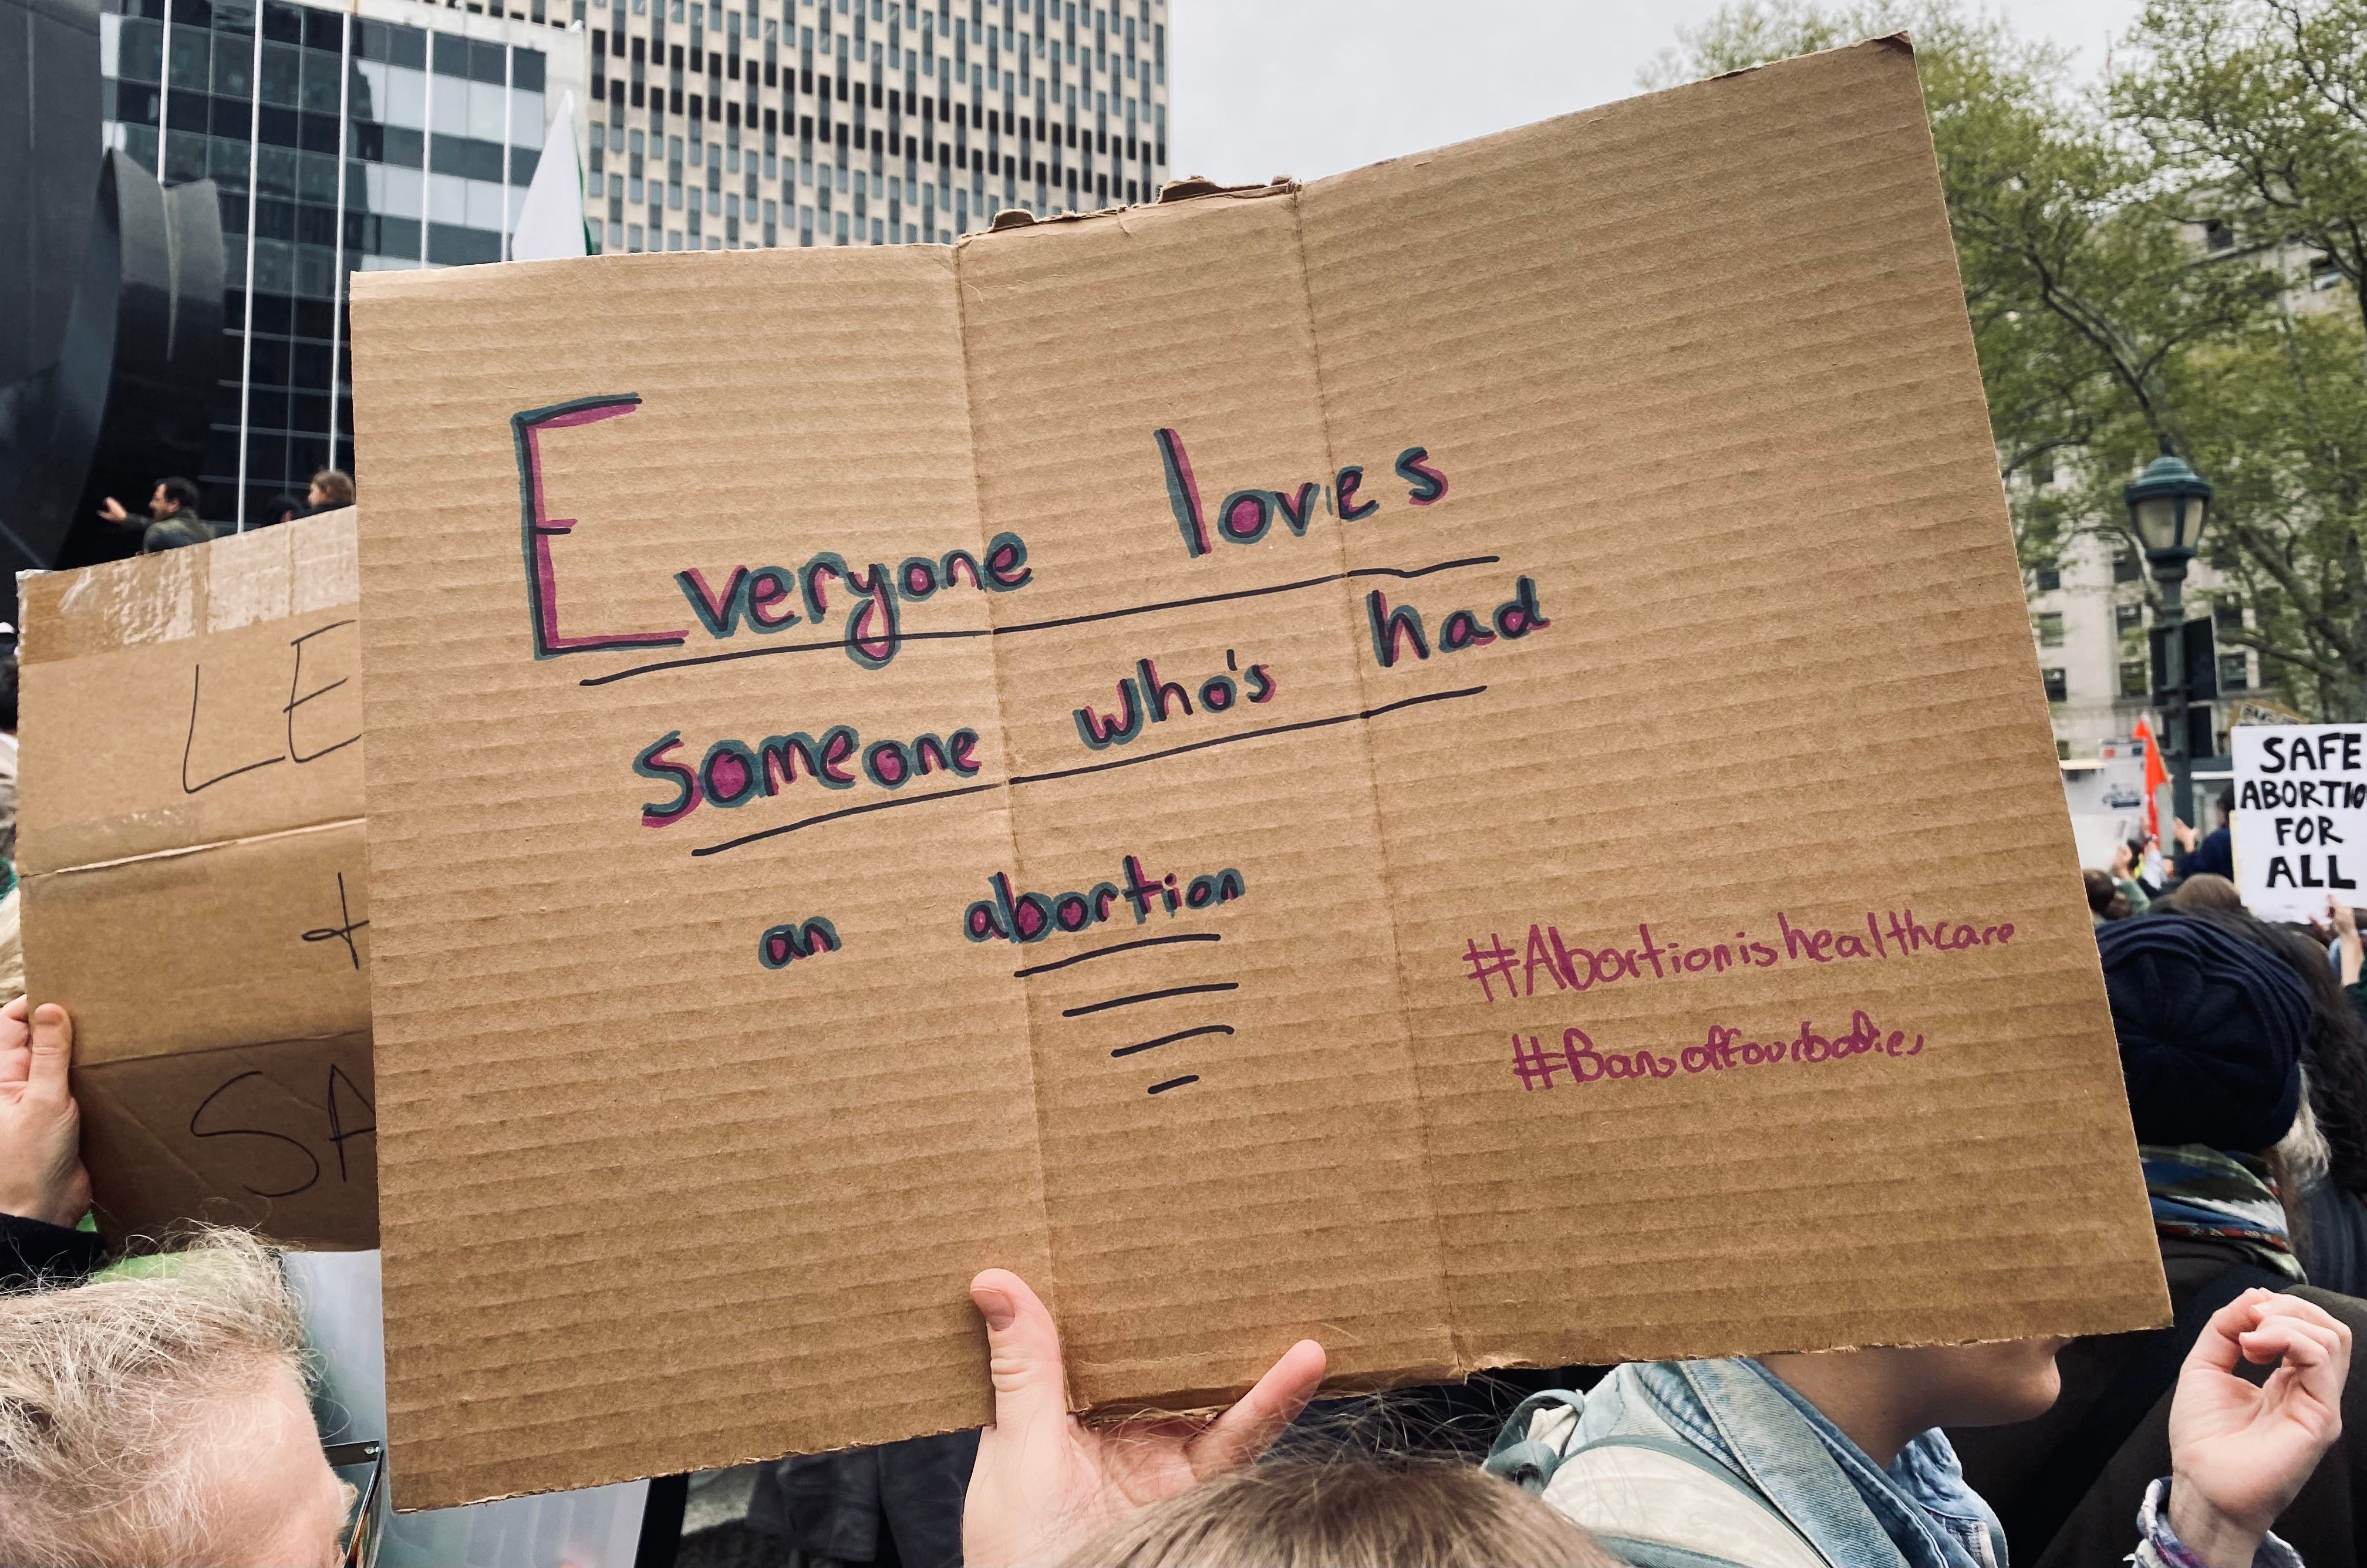 Everyone loves
someone who's had
an abortion
#Abortionishealthcare
#Bansoffourbodies
LE
+
SA
SAFE
ABORTIO
FOR
ALL